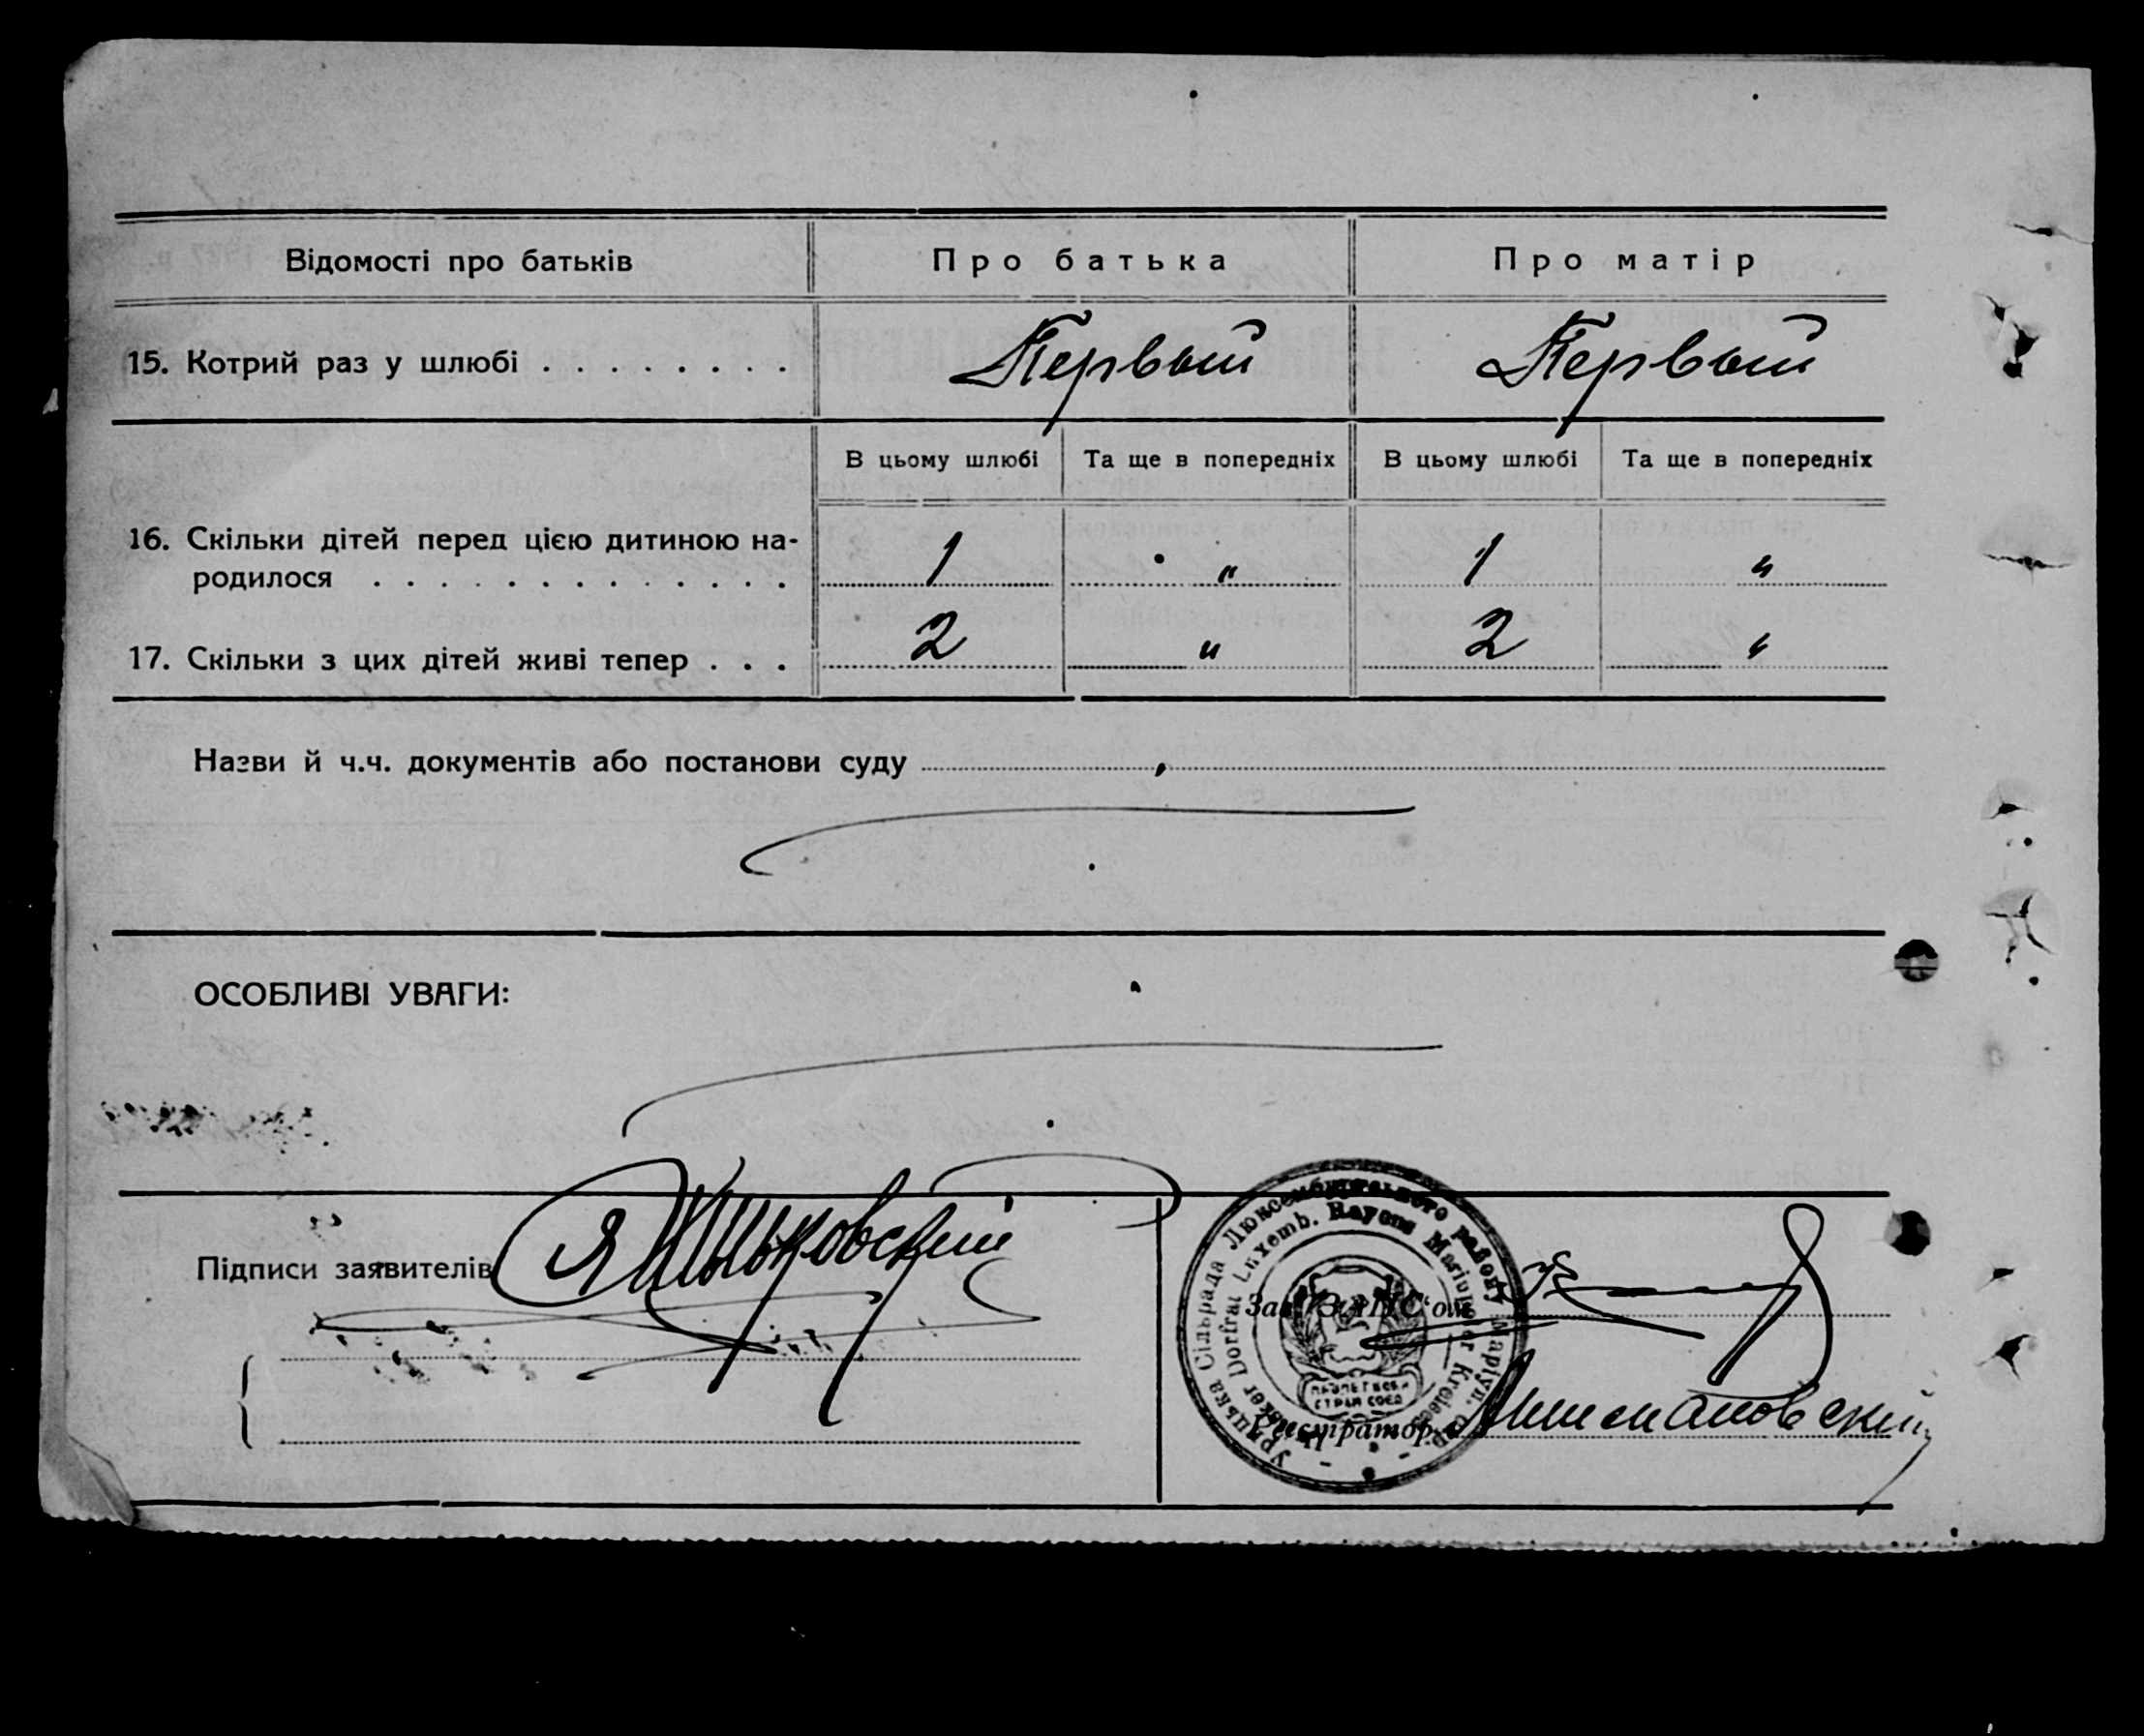 Відомості про батьків
Про батька
Про матір
15. Котрий раз у шлюбі . . . . . . . .
Первый
Первый
В цьому шлюбі
Та ще в попередніх
В цьому шлюбі
Та ще в попередніх
16. Скільки дітей перед цією дитиною на-
родилося . . . . . . . . . . . . .
1
"
1
"
17. Скільки з цих дітей живі тепер . . .
2
"
2
"
Назви й ч.ч. документів або постанови суду
ОСОБЛИВІ УВАГИ:
Підписи заявителів
Зав. ЗАГС'ом
Реєстратор
Урицька Сільрада Люксембургського району Маріуп. окр.
Dorfrat Luxemb. Rayons Mariupoler Kreises